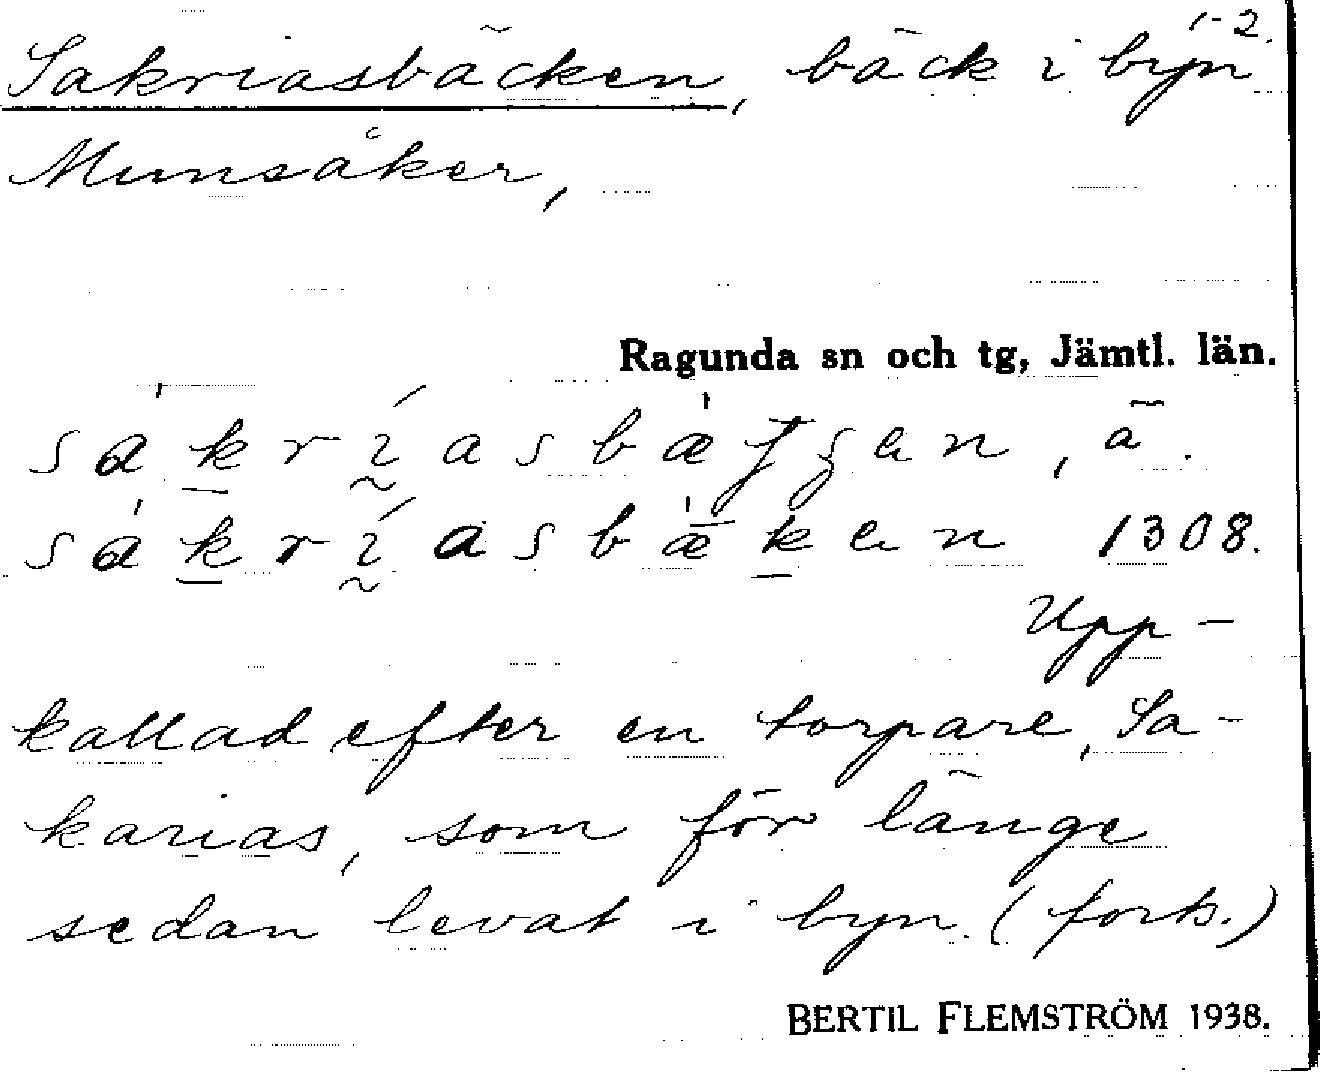 1-2.
Sakriasbäcken, bäck i byn
Munsåker,
Ragunda sn och tg, Jämtl. län.
1308.
Upp-
kallad efter en torpare, Sa-
karias, som för länge
sedan levat i byn. (fork.)
BERTIL FLEMSTRÖM 1938.